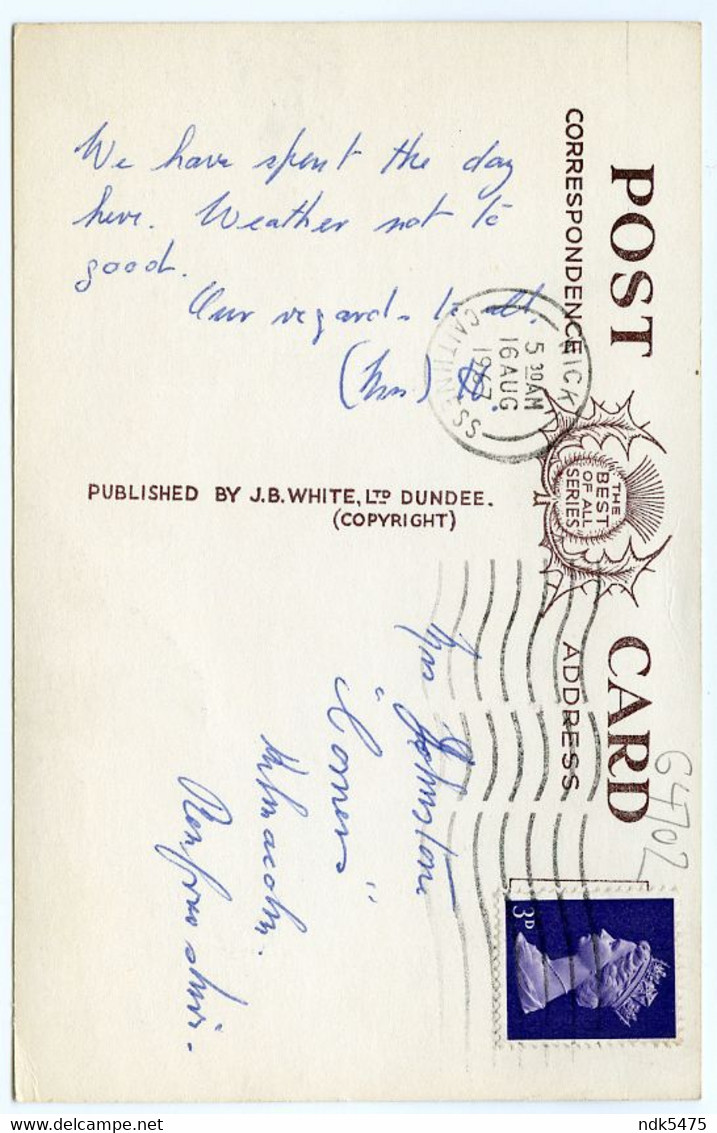 POST CARD
CORRESPONDENCE
ADDRESS
THE
BEST
OF ALL
SERIES
We have spent the day
here. Weather not to
good.
Our regards to all.
(Mrs)
WICK
5 30 AM
16 AUG
1967
CAITHNESS
PUBLISHED BY J.B. WHITE, LTD DUNDEE.
(COPYRIGHT)
Mrs Johnston
"Corners"
Kilmacolm.
Renfrewshire.
64702
3D
ndk5475